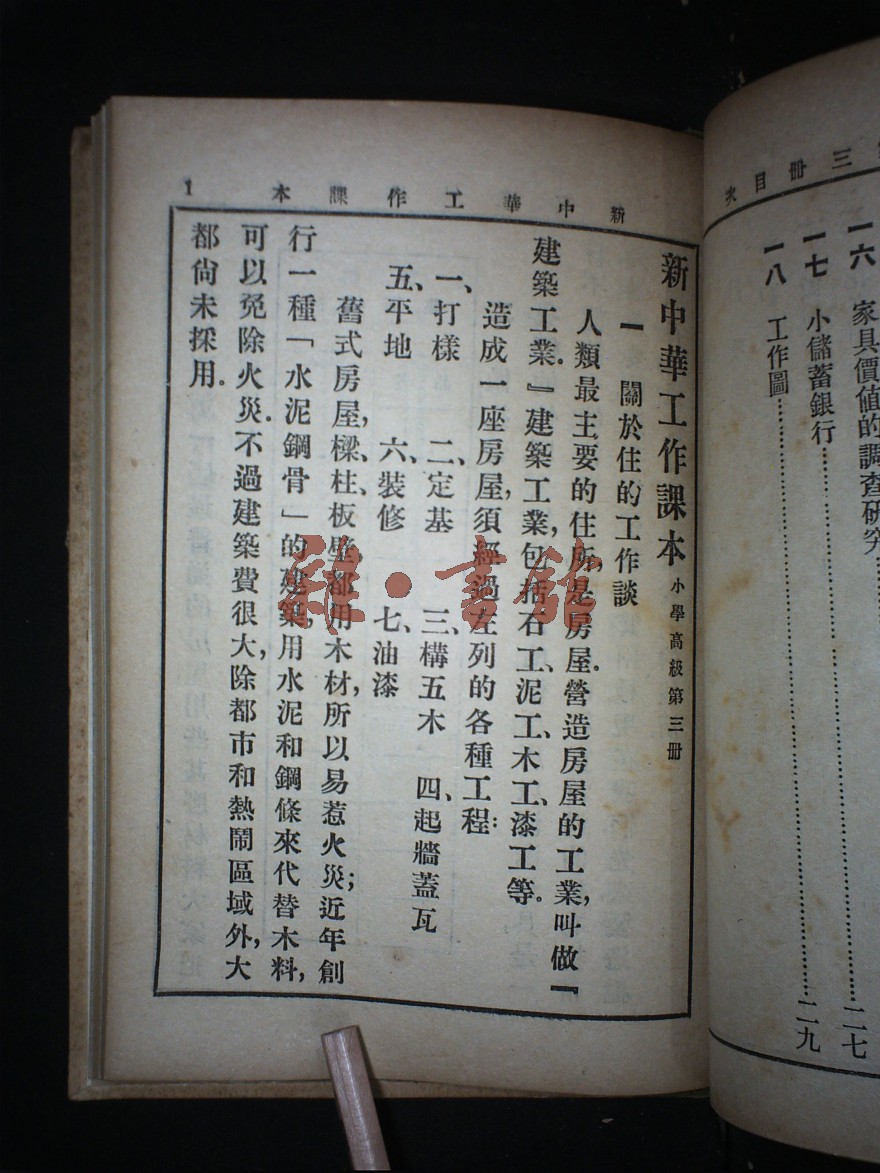 第三册目次
一六 家具價值的調查研究
一七 小儲蓄銀行……二七
一八 工作圖……二九
新中華工作課本 1
新中華工作課本 小學高級第三册
一 關於住的工作談
人類最主要的住所,是房屋.營造房屋的工業,叫做『
建築工業.』建築工業,包括石工、泥工、木工、漆工等.
造成一座房屋,須經過左列的各種工程:
一、打樣 二、定基 三、構五木 四、起牆蓋瓦
五、平地 六、裝修 七、油漆
舊式房屋,樑、柱、板壁,都用木材,所以易惹火災;近年創
行一種「水泥鋼骨」的建築,用水泥和鋼條來代替木料,
可以免除火災.不過建築費很大,除都市和熱鬧區域外,大
都尙未採用.
雜·書館